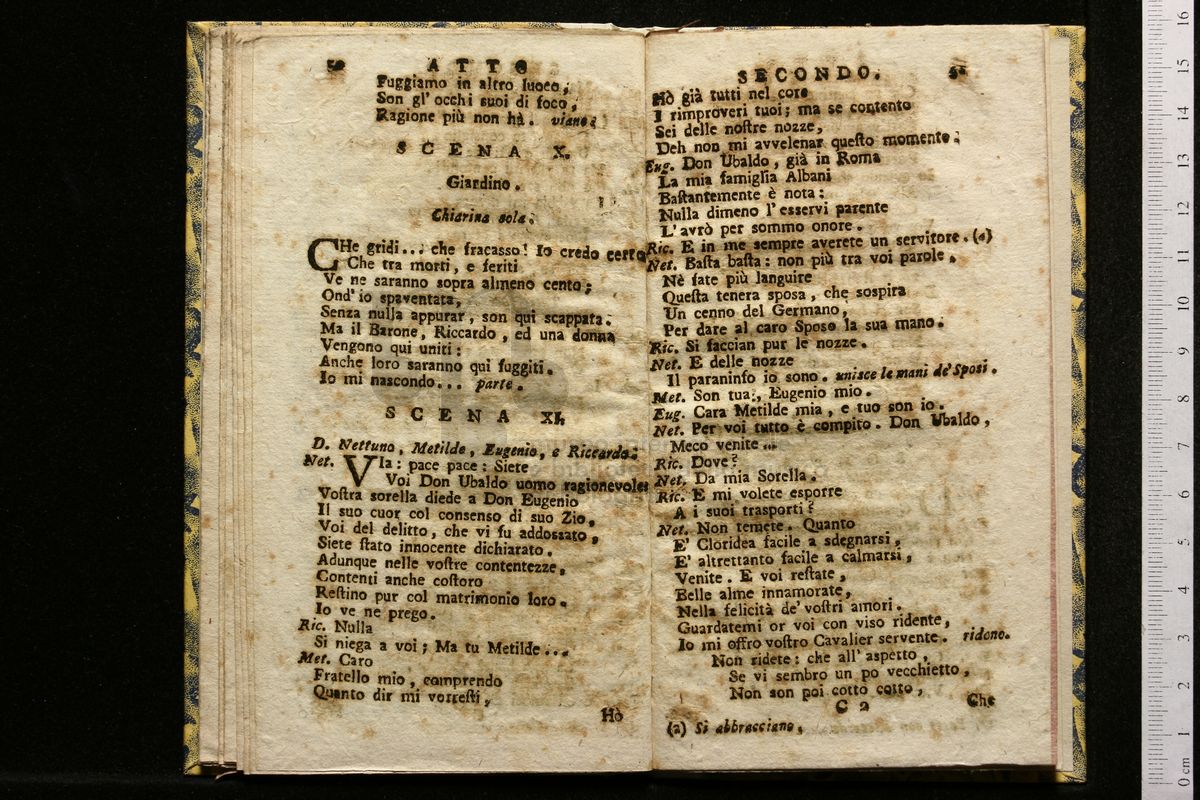 50 ATTO
Fuggiamo in altro luoco,
Son gl' occhi suoi di foco,
Ragione più non hà. viano.
SCENA X.
Giardino.
Chiarina sola.
CHe gridi... che fracasso! Io credo certo
Che tra morti, e feriti
Ve ne saranno sopra almeno cento;
Ond' io spaventata,
Senza nulla appurar, son qui scappata.
Ma il Barone, Riccardo, ed una donna
Vengono qui uniti:
Anche loro saranno qui fuggiti.
Io mi nascondo... parte.
SCENA XI.
D. Nettuno, Metilde, Eugenio, e Riccardo.
Net. VIa: pace pace: Siete
Voi Don Ubaldo uomo ragionevole:
Vostra sorella diede a Don Eugenio
Il suo cuor col consenso di suo Zio,
Voi del delitto, che vi fu addossato,
Siete stato innocente dichiarato.
Adunque nelle vostre contentezze,
Contenti anche costoro
Restino pur col matrimonio loro.
Io ve ne prego.
Ric. Nulla
Si niega a voi; Ma tu Metilde...
Met. Caro
Fratello mio, comprendo
Quanto dir mi vorresti,
Hò
SECONDO. 51
Hò già tutti nel core
I rimproveri tuoi; ma se contento
Sei delle nostre nozze,
Deh non mi avvelenar questo momento.
Eug. Don Ubaldo, già in Roma
La mia famiglia Albani
Bastantemente è nota:
Nulla dimeno l' esservi parente
L' avrò per sommo onore.
Ric. E in me sempre averete un servitore. (a)
Net. Basta basta: non più tra voi parole,
Nè fate più languire
Questa tenera sposa, che sospira
Un cenno del Germano,
Per dare al caro Sposo la sua mano.
Ric. Si faccian pur le nozze.
Net. E delle nozze
Il paraninfo io sono. unisce le mani de' Sposi.
Met. Son tua, Eugenio mio.
Eug. Cara Metilde mia, e tuo son io.
Net. Per voi tutto è compito. Don Ubaldo,
Meco venite...
Ric. Dove?
Net. Da mia Sorella.
Ric. E mi volete esporre
A i suoi trasporti?
Net. Non temete. Quanto
E' Cloridea facile a sdegnarsi,
E' altrettanto facile a calmarsi,
Venite. E voi restate,
Belle alme innamorate,
Nella felicità de' vostri amori.
Guardatemi or voi con viso ridente,
Io mi offro vostro Cavalier servente. ridono.
Non ridete: che all' aspetto,
Se vi sembro un po vecchietto,
Non son poi cotto cotto,
C 2 Che
(a) Si abbracciano,